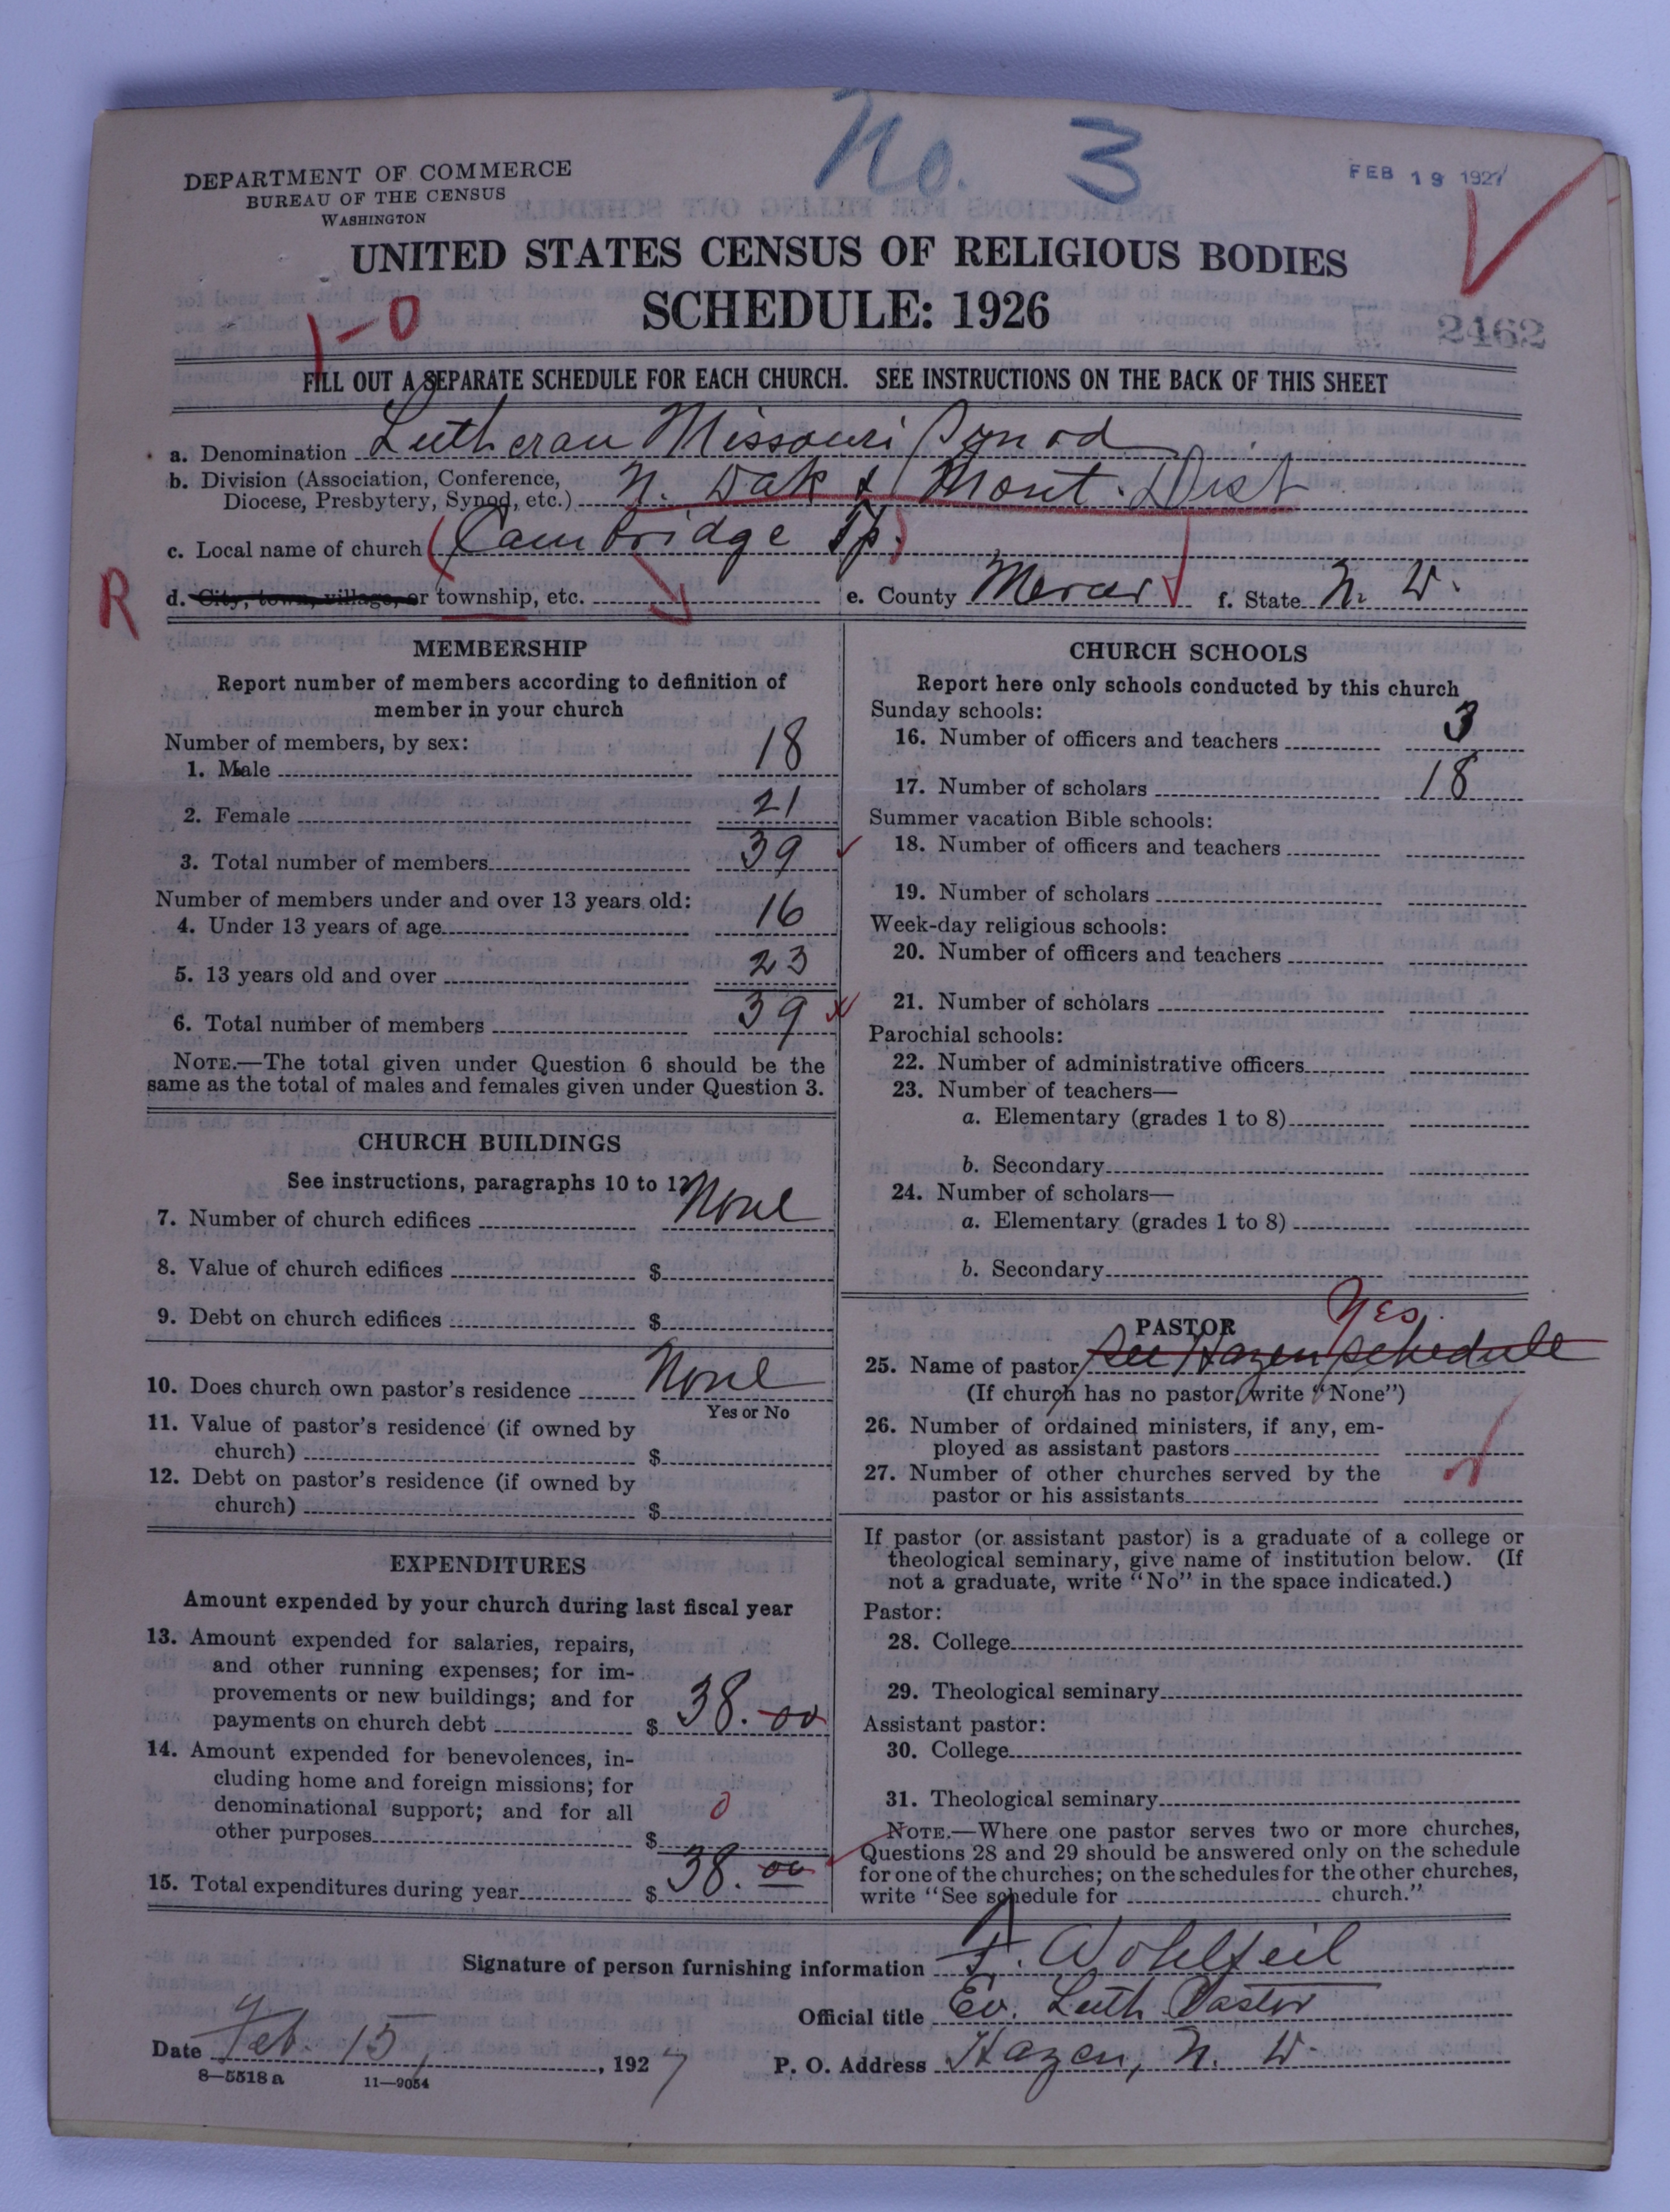 No. 3
FEB 19 1927
DEPARTMENT OF COMMERCE
BUREAU OF THE CENSUS
WASHINGTON
UNITED STATES CENSUS OF RELIGIOUS BODIES
SCHEDULE: 1926
1-0
2462
FILL OUT A SEPARATE SCHEDULE FOR EACH CHURCH. SEE INSTRUCTIONS ON THE BACK OF THIS SHEET
a. Denomination Lutheran Missouri Synod
b. Division (Association, Conference,
Diocese, Presbytery, Synod, etc.) N. Dak & Mont. Dist
c. Local name of church (Cambridge Tp.)
R
d. City, town, village, or township, etc. e. County Mercer f. State N. D.
MEMBERSHIP
Report number of members according to definition of
member in your church
Number of members, by sex:
1. Male 18
2. Female 21
3. Total number of members 39
Number of members under and over 13 years old:
4. Under 13 years of age 16
5. 13 years old and over 23
6. Total number of members 39
NOTE.—The total given under Question 6 should be the
same as the total of males and females given under Question 3.
CHURCH BUILDINGS
See instructions, paragraphs 10 to 12
7. Number of church edifices None
8. Value of church edifices $
9. Debt on church edifices $
10. Does church own pastor's residence None
Yes or No
11. Value of pastor's residence (if owned by
church) $
12. Debt on pastor's residence (if owned by
church) $
EXPENDITURES
Amount expended by your church during last fiscal year
13. Amount expended for salaries, repairs,
and other running expenses; for im-
provements or new buildings; and for
payments on church debt $ 38.00
14. Amount expended for benevolences, in-
cluding home and foreign missions; for
denominational support; and for all 0
other purposes $
15. Total expenditures during year $ 38.00
CHURCH SCHOOLS
Report here only schools conducted by this church
Sunday schools:
16. Number of officers and teachers 3
17. Number of scholars 18
Summer vacation Bible schools:
18. Number of officers and teachers
19. Number of scholars
Week-day religious schools:
20. Number of officers and teachers
21. Number of scholars
Parochial schools:
22. Number of administrative officers
23. Number of teachers—
a. Elementary (grades 1 to 8)
b. Secondary
24. Number of scholars—
a. Elementary (grades 1 to 8)
b. Secondary
Yes
PASTOR
25. Name of pastor See Hazen schedule
(If church has no pastor, write "None")
26. Number of ordained ministers, if any, em-
ployed as assistant pastors
27. Number of other churches served by the
pastor or his assistants
If pastor (or assistant pastor) is a graduate of a college or
theological seminary, give name of institution below. (If
not a graduate, write "No" in the space indicated.)
Pastor:
28. College
29. Theological seminary
Assistant pastor:
30. College
31. Theological seminary
NOTE.—Where one pastor serves two or more churches,
Questions 28 and 29 should be answered only on the schedule
for one of the churches; on the schedules for the other churches,
write "See schedule for church."
Signature of person furnishing information F. Wohlfeil
Official title Ev. Luth. Pastor
Date Feb. 15, 1927 P. O. Address Hazen, N. D.
8—5518 a 11—9054